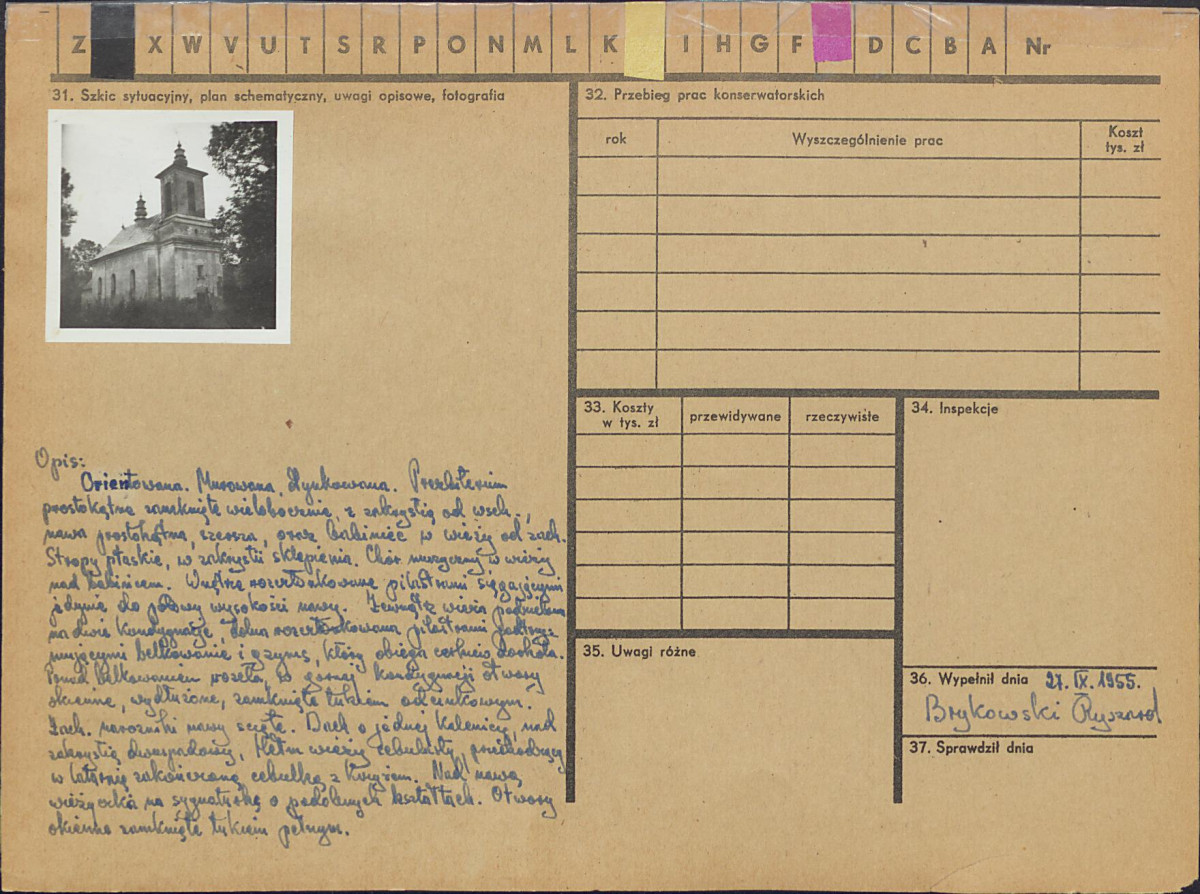 Z X W V U T S R P O N M L K I H G F D C B A Nr
31. Szkic sytuacyjny, plan schematyczny, uwagi opisowe, fotografia
Opis:
Orientowana. Murowana, tynkowana. Prezbiterium
prostokątne zamknięte wielobocznie, z zakrystią od wsch.,
nawa prostokątna, szersza, oraz babiniec w wieży od zach.
Stropy płaskie, w zakrystii sklepienia. Chór muzyczny w wieży
nad babińcem. Wnętrze rozczłonkowane pilastrami sięgającymi
jedynie do połowy wysokości nawy. Zewnątrz wieża podzielona
na dwie kondygnacje, dolna rozczłonkowana pilastrami podtrzy-
mującymi belkowanie i gzyms, który obiega cerkiew dookoła.
Ponad belkowaniem rozeta, w górnej kondygnacji otwory
okienne, wydłużone, zamknięte łukiem odcinkowym.
Zach. narożniki nawy ścięte. Dach o jednej kalenicy, nad
zakrystią dwuspadowy. Hełm wieży cebulasty, przechodzący
w latarnię zakończoną cebulką z krzyżem. Nad nawą
wieżyczka na sygnaturkę o podobnych kształtach. Otwory
okienne zamknięte łukiem pełnym.
32. Przebieg prac konserwatorskich
rok Wyszczególnienie prac Koszt tys. zł
33. Koszty w tys. zł przewidywane rzeczywiste
34. Inspekcje
35. Uwagi różne
36. Wypełnił dnia 27. IX. 1955.
Brykowski Ryszard
37. Sprawdził dnia